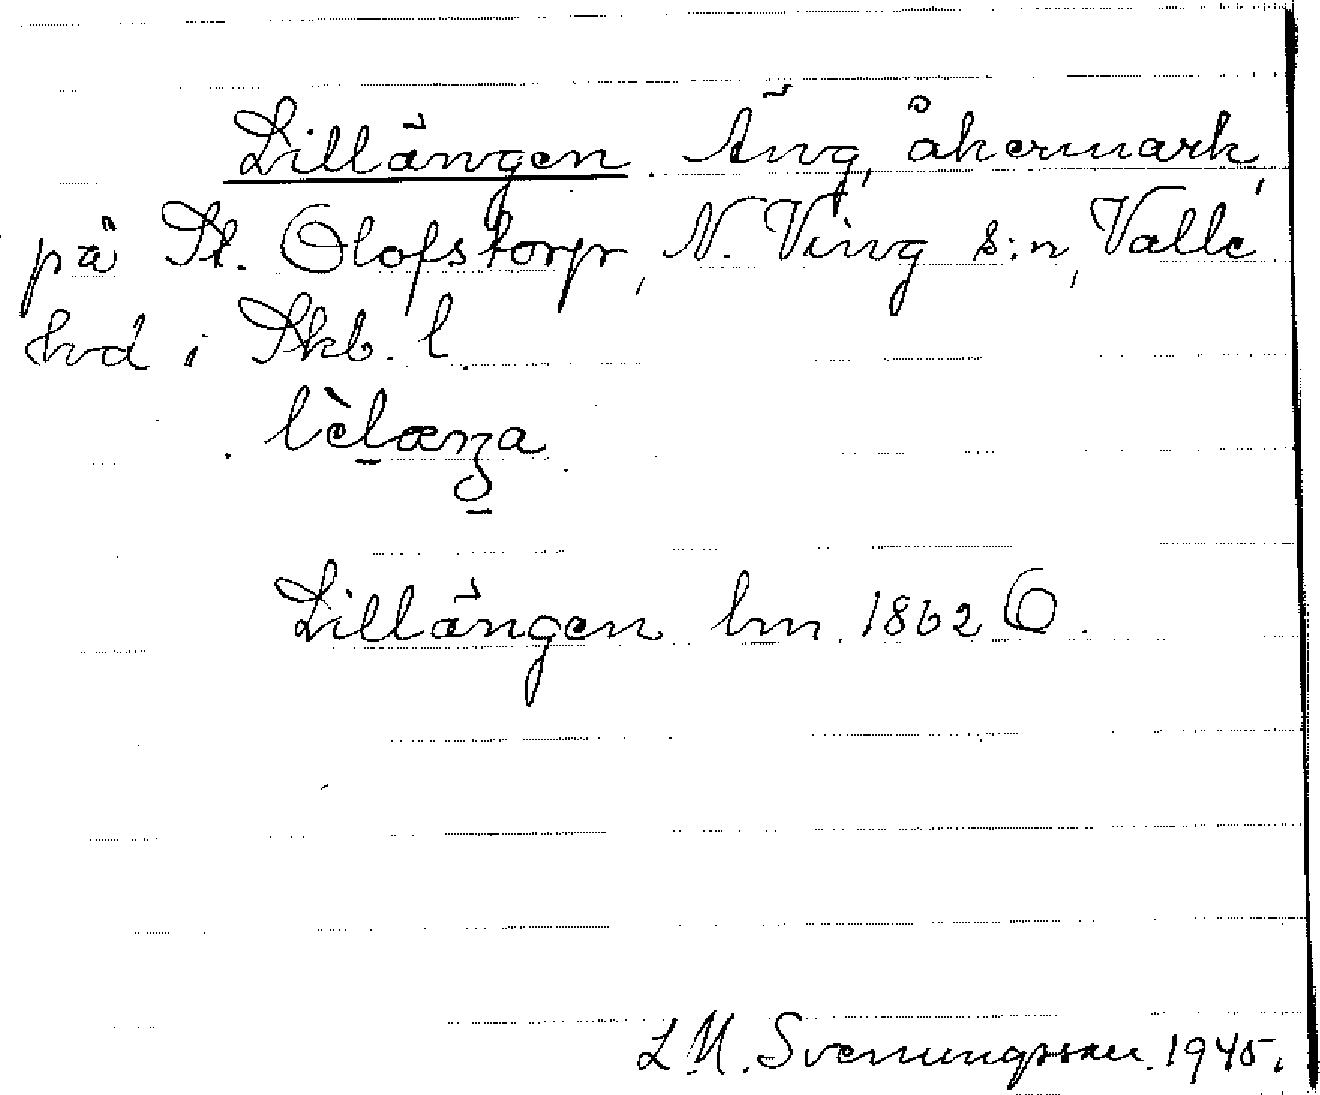 Lillängen. Äng, åkermark,
på St. Olofstorp, N. Ving s:n, Valle
hvd i Skb. l.
lèlæŋa
Lillängen lm. 1862 Ⓞ.
L M. Svenungsson. 1945.